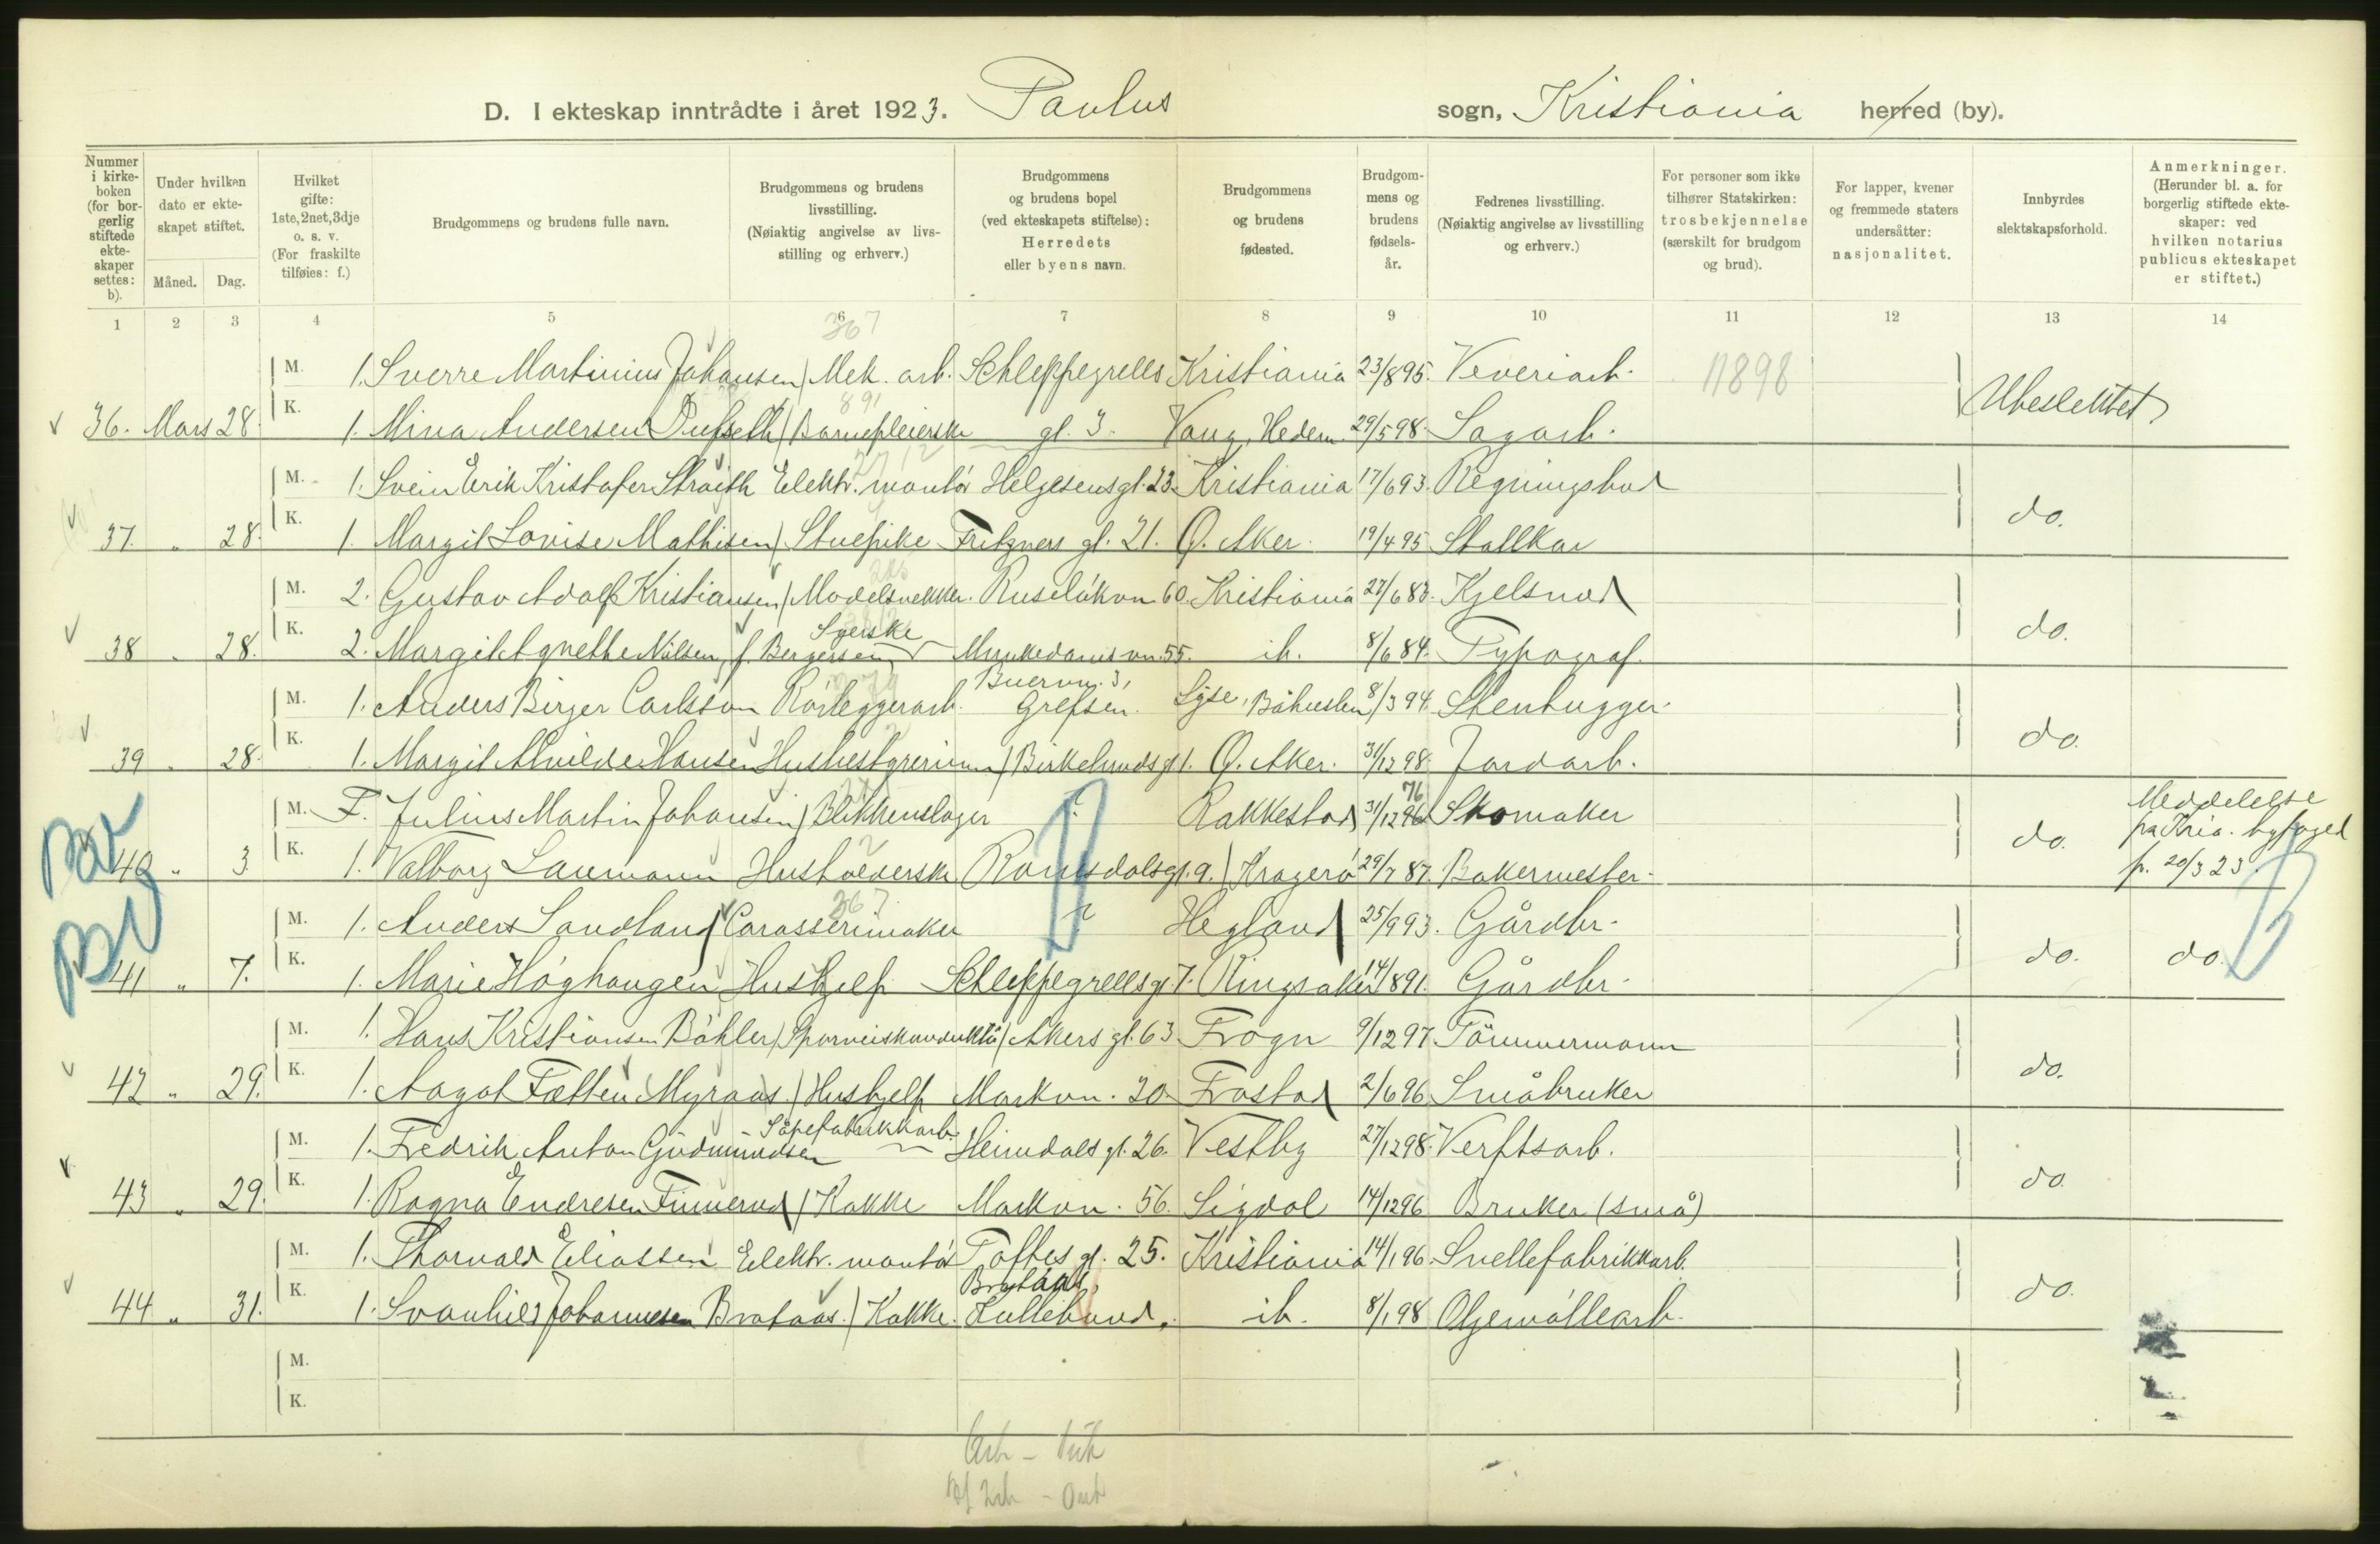 D. I ekteskap inntrådte i året 1923. Paulus sogn, Kristiania herred (by).
Nummer i kirkeboken (for borgerlig stiftede ekteskaper settes: b).
Under hvilken dato er ekteskapet stiftet.
Måned. Dag.
Hvilket gifte: 1ste, 2net, 3dje o. s. v. (For fraskilte tilføies: f.)
Brudgommens og brudens fulle navn.
Brudgommens og brudens livsstilling. (Nøiaktig angivelse av livsstilling og erhverv.)
Brudgommens og brudens bopel (ved ekteskapets stiftelse): Herredets eller byens navn.
Brudgommens og brudens fødested.
Brudgommens og brudens fødselsår.
Fedrenes livsstilling. (Nøiaktig angivelse av livsstilling og erhverv.)
For personer som ikke tilhører Statskirken: trosbekjennelse (særskilt for brudgom og brud).
For lapper, kvener og fremmede staters undersåtter: nasjonalitet.
Innbyrdes slektskapsforhold.
Anmerkninger. (Herunder bl. a. for borgerlig stiftede ekteskaper: ved hvilken notarius publicus ekteskapet er stiftet.)
1 2 3 4 5 6 7 8 9 10 11 12 13 14
367
M. 1. Sverre Martinius Johansen Mek. arb. Schleppegrells Kristiania 23/8 95. Veveriarb. 11898
891
36. Mars 28. K. 1. Mina Andersen Barnepleierske gl. 3. Vang, Hedem. 29/5 98. Sagarb. Ubeslektet
M. 1. Svein Erik Kristofer Elektr. montør Helgesensgt. 23. Kristiania 17/6 93. Regningsbud
37. " 28. K. 1. Margit Lovise Mathisen Stuepike Fritzners gt. 21. Ø. Aker. 19/4 95 Stallkar do.
M. 2. Gustav Adolf Kristiansen Modelsnekker. Ruseløkvn 60. Kristiania 27/6 83. Kjelsmed
38 " 28. K. 2. Margit Agnethe Nilsen, f. Bergersen Syerske Munkedamsvn. 55. ib. 8/6 84. Typograf. do.
M. 1. Anders Birger Carlsson Rørleggerarb. Buervn. 3, Grefsen. Lyse, Båhuslen 8/3 94. Stenhugger.
39 " 28. K. 1. Margit Alvilde Hansen Husbestyrerinne Birkelundsgt. Ø. Aker. 31/12 98. Jordarb. do.
M. F. Julius Martin Johansen Blikkenslager ? Rakkestad 31/12 96 76 Skomaker Meddelelse
40 " 3. K. 1. Valborg Laumann Husholderske Romsdalsgt. 9. Kragerø 29/7 87. Bakermester. do. fra Kria. byfoged p. 20/3 23.
367.
M. 1. Anders Sandland Carosserimaker ? Hegland 25/9 93. Gårdbr.
41 " 7. K. 1. Marie Høghaugen Hushjelp Schleppegrellsgt. 7. Ringsaker 14/8 91. Gårdbr. do. do.
M. 1. Hans Kristiansen Bøhler Sporveiskonduktør Akers gt. 63 Frogn 9/12 97. Tømmermann
42 " 29. K. 1. Aagot Fætten Myraas. Hushjelp Markvn. 20. Frostad 2/6 96 Småbruker do.
M. 1. Fredrik Anton Gudmundsen Såpefabrikkarb. Heimdals gt. 26. Vestby 27/12 98. Verftsarb.
43 " 29. K. 1. Ragna Endresen Finnerud Kokke Markvn. 56. Sigdal 14/12 96 Bruker (små) do
M. 1. Thorvald Eliassen Elektr. montør Toftes gt. 25. Kristiania 14/1 96. Snellefabrikkarb.
44 " 31. K. 1. Svanhild Johannesen Brataas. Kokke. Brataas, Lullebund, ib. 8/1 98 Oljemøllearb. do.
M.
K.